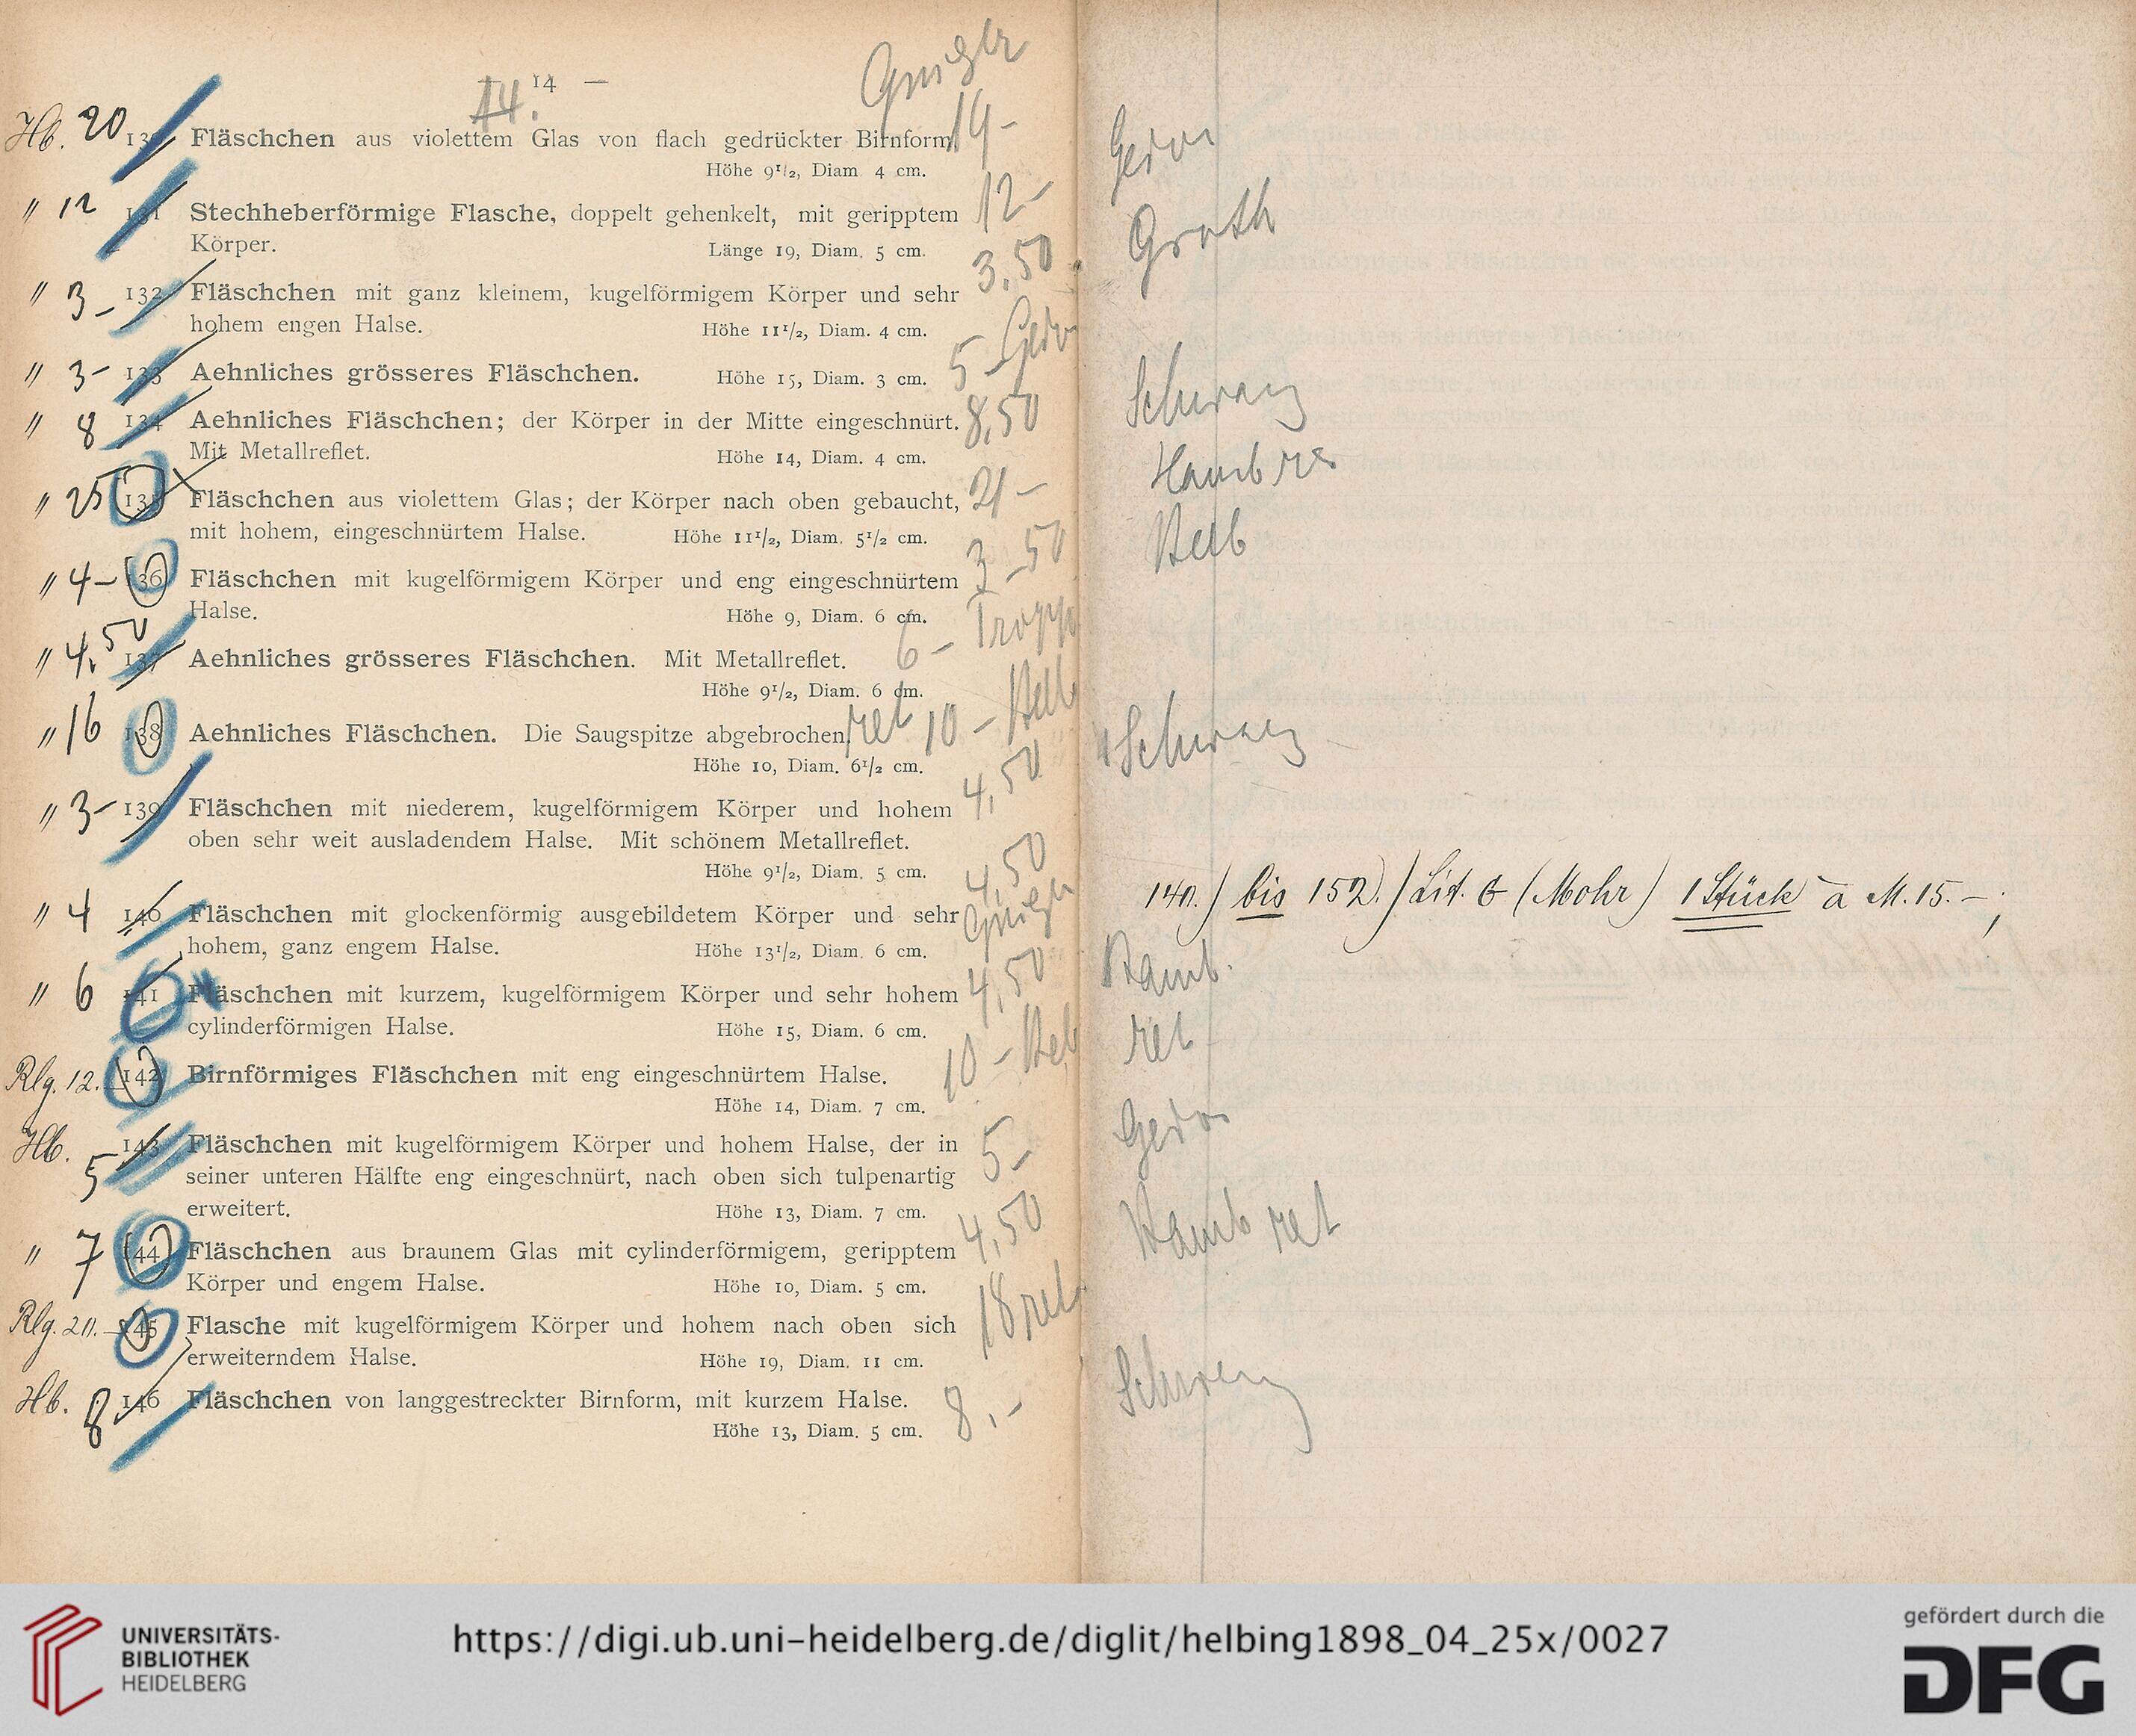 14 —
14.
Hb. 20 130 Fläschchen aus violettem Glas von flach gedrückter Birnform. 19-
Höhe 9½, Diam 4 cm.
" 12 131 Stechheberförmige Flasche, doppelt gehenkelt, mit geripptem 12-
Körper. Länge 19, Diam. 5 cm.
Groth
" 3- 132 Fläschchen mit ganz kleinem, kugelförmigem Körper und sehr 3,50
hohem engen Halse. Höhe 11½, Diam. 4 cm.
" 3- 133 Aehnliches grösseres Fläschchen. Höhe 15, Diam. 3 cm. 5-
" 8 134 Aehnliches Fläschchen; der Körper in der Mitte eingeschnürt. 8,50
Mit Metallreflet. Höhe 14, Diam. 4 cm.
" 25 135 Fläschchen aus violettem Glas; der Körper nach oben gebaucht, 21-
mit hohem, eingeschnürtem Halse. Höhe 11½, Diam. 5½ cm.
" 4- 136 Fläschchen mit kugelförmigem Körper und eng eingeschnürtem 3-50
Halse. Höhe 9, Diam. 6 cm.
" 4,50 137 Aehnliches grösseres Fläschchen. Mit Metallreflet. 6-
Höhe 9½, Diam. 6 cm.
" 16 138 Aehnliches Fläschchen. Die Saugspitze abgebrochen. ret 10-
Höhe 10, Diam. 6½ cm.
" 3- 139 Fläschchen mit niederem, kugelförmigem Körper und hohem 4,50
oben sehr weit ausladendem Halse. Mit schönem Metallreflet.
Höhe 9½, Diam. 5 cm.
140.) bis 152.) Lit. G (Mohr) 1 Stück à M. 15.-;
" 4 140 Fläschchen mit glockenförmig ausgebildetem Körper und sehr 4,50
hohem, ganz engem Halse. Höhe 13½, Diam. 6 cm.
" 6 141 Fläschchen mit kurzem, kugelförmigem Körper und sehr hohem 4,50
cylinderförmigen Halse. Höhe 15, Diam. 6 cm.
ret
Rlg. 12. 142 Birnförmiges Fläschchen mit eng eingeschnürtem Halse. 10-
Höhe 14, Diam. 7 cm.
Hb. 5 143 Fläschchen mit kugelförmigem Körper und hohem Halse, der in 5-
seiner unteren Hälfte eng eingeschnürt, nach oben sich tulpenartig
erweitert. Höhe 13, Diam. 7 cm.
" 7 144 Fläschchen aus braunem Glas mit cylinderförmigem, geripptem 4,50 ret
Körper und engem Halse. Höhe 10, Diam. 5 cm.
Rlg. 20. 145 Flasche mit kugelförmigem Körper und hohem nach oben sich 18 ret
erweiterndem Halse. Höhe 19, Diam. 11 cm.
Hb. 8 146 Fläschchen von langgestreckter Birnform, mit kurzem Halse. 8.-
Höhe 13, Diam. 5 cm.
UNIVERSITÄTS-
BIBLIOTHEK
HEIDELBERG
https://digi.ub.uni-heidelberg.de/diglit/helbing1898_04_25x/0027
gefördert durch die
DFG